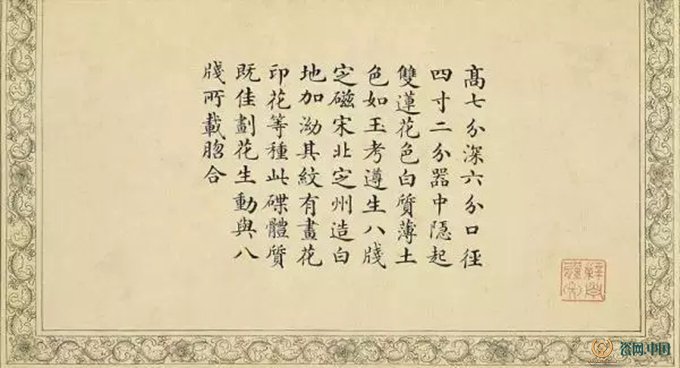 高七分深六分口徑
四寸二分器中隱起
雙蓮花色白質薄土
色如玉考遵生八牋
定磁宋北定州造白
地加泑其紋有畫花
印花等種此碟體質
既佳劃花生動與八
牋所載脗合
瓷网.中国